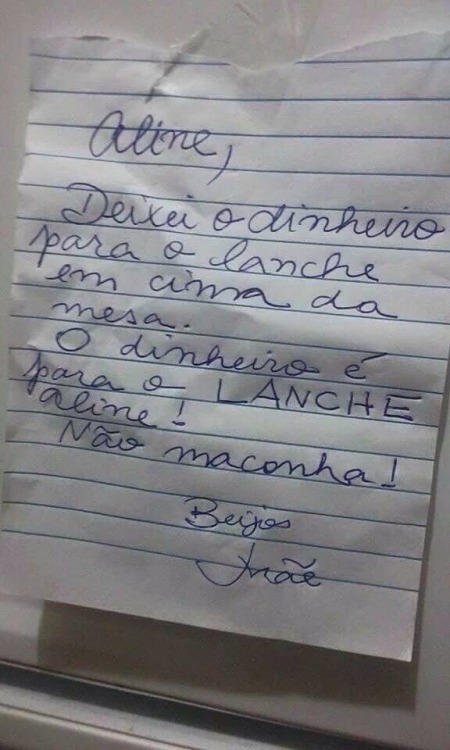 Aline,
Deixei o dinheiro
para o lanche
em cima da
mesa.
O dinheiro é
para o LANCHE
Aline!
Não maconha!
Beijos
Mãe